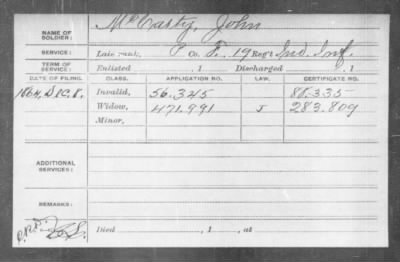 NAME OF SOLDIER: McCarty, John
SERVICE: Late rank, P Co. F, 19 Reg't Ind. Inf.
TERM OF SERVICE: Enlisted , 1 Discharged , 1
DATE OF FILING. CLASS. APPLICATION NO. LAW. CERTIFICATE NO.
1864, Dec. 8. Invalid, 56.345 88.335
Widow, 471.991 J 283.809
Minor,
ADDITIONAL SERVICES:
REMARKS:
Died , 1 , at